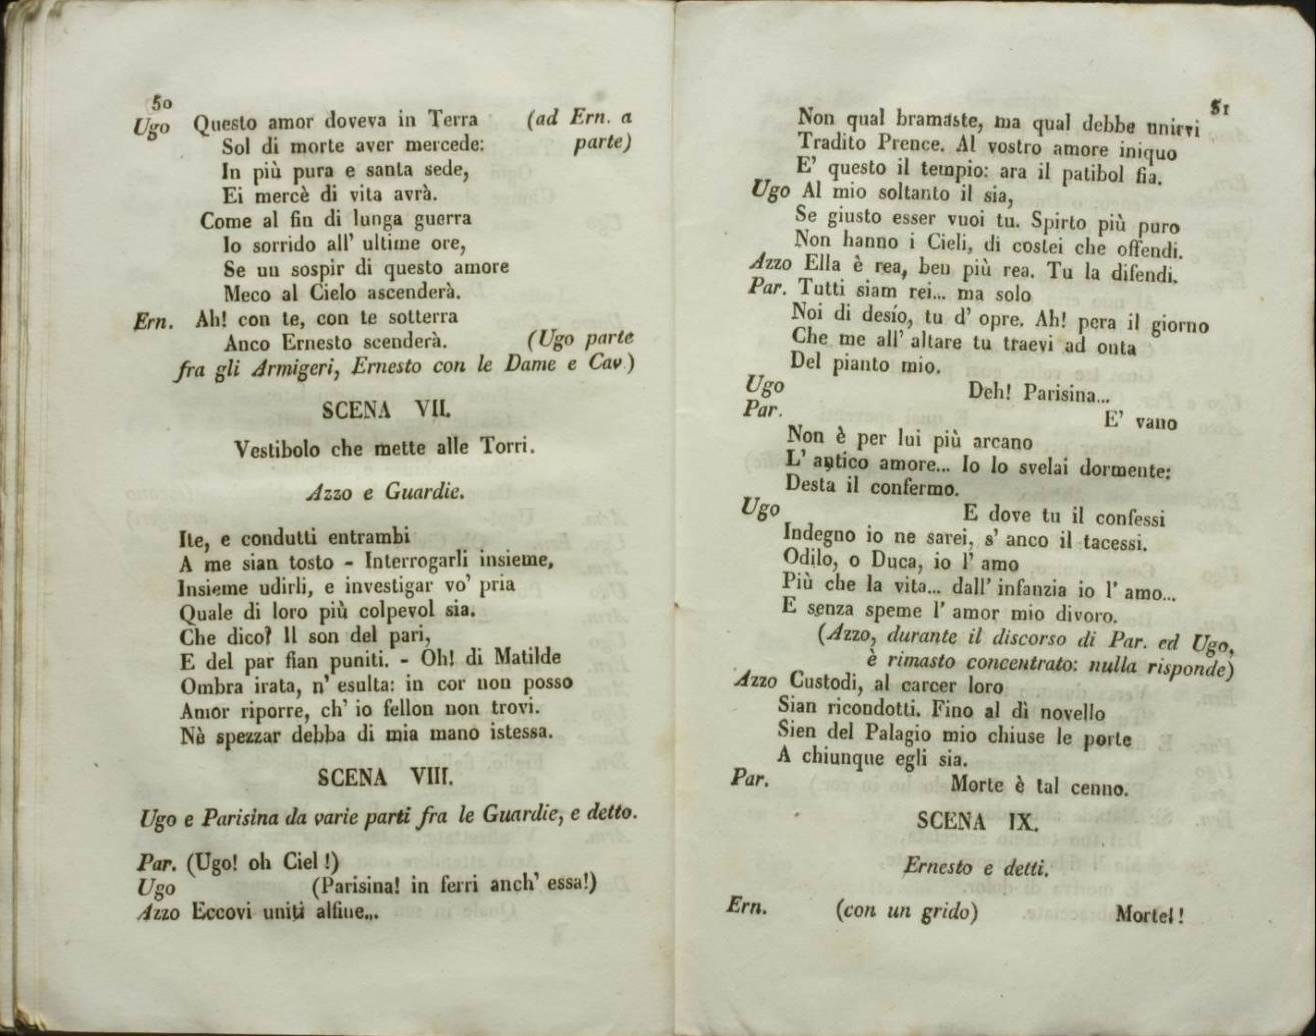 50
Ugo Questo amor doveva in Terra (ad Ern. a
Sol di morte aver mercede: parte)
In più pura e santa sede,
Ei mercè di vita avrà.
Come al fin di lunga guerra
Io sorrido all' ultime ore,
Se un sospir di questo amore
Meco al Cielo ascenderà.
Ern. Ah! con te, con te sotterra
Anco Ernesto scenderà. (Ugo parte
fra gli Armigeri, Ernesto con le Dame e Cav.)
SCENA VII.
Vestibolo che mette alle Torri.
Azzo e Guardie.
Ite, e condutti entrambi
A me sian tosto - Interrogarli insieme,
Insieme udirli, e investigar vo' pria
Quale di loro più colpevol sia.
Che dico? Il son del pari,
E del par fian puniti. - Oh! di Matilde
Ombra irata, n' esulta: in cor non posso
Amor riporre, ch' io fellon non trovi.
Nè spezzar debba di mia mano istessa.
SCENA VIII.
Ugo e Parisina da varie parti fra le Guardie, e detto.
Par. (Ugo! oh Ciel!)
Ugo (Parisina! in ferri anch' essa!)
Azzo Eccovi uniti alfine...
51
Non qual bramaste, ma qual debbe unirvi
Tradito Prence. Al vostro amore iniquo
E' questo il tempio: ara il patibol fia.
Ugo Al mio soltanto il sia,
Se giusto esser vuoi tu. Spirto più puro
Non hanno i Cieli, di costei che offendi.
Azzo Ella è rea, ben più rea. Tu la difendi.
Par. Tutti siam rei... ma solo
Noi di desio, tu d' opre. Ah! pera il giorno
Che me all' altare tu traevi ad onta
Del pianto mio.
Ugo Deh! Parisina...
Par. E' vano
Non è per lui più arcano
L' antico amore... Io lo svelai dormente:
Desta il confermo.
Ugo E dove tu il confessi
Indegno io ne sarei, s' anco il tacessi.
Odilo, o Duca, io l' amo
Più che la vita... dall' infanzia io l' amo...
E senza speme l' amor mio divoro.
(Azzo, durante il discorso di Par. ed Ugo,
è rimasto concentrato: nulla risponde)
Azzo Custodi, al carcer loro
Sian ricondotti. Fino al dì novello
Sien del Palagio mio chiuse le porte
A chiunque egli sia.
Par. Morte è tal cenno.
SCENA IX.
Ernesto e detti.
Ern. (con un grido) Morte!!